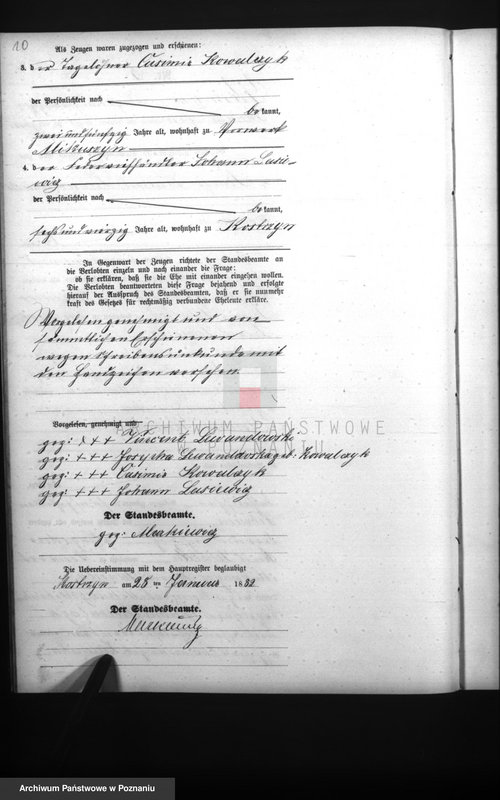 10
Als Zeugen waren zugezogen und erschienen:
3. der Tagelöhner Casimir Kowalczyk
der Persönlichkeit nach
be kannt,
zweiundfünfzig Jahre alt, wohnhaft zu Vorwerk
Mikuszyn
4. der Federviehhändler Johann Lasie-
wicz
der Persönlichkeit nach
be kannt,
sechsundvierzig Jahre alt, wohnhaft zu Kostrzyn
In Gegenwart der Zeugen richtete der Standesbeamte an
die Verlobten einzeln und nach einander die Frage:
ob sie erklären, daß sie die Ehe mit einander eingehen wollen.
Die Verlobten beantworteten diese Frage bejahend und erfolgte
hierauf der Ausspruch des Standesbeamten, daß er sie nunmehr
kraft des Gesetzes für rechtmäßig verbundene Eheleute erkläre.
Vorgelesen genehmigt und von
sämmtlichen Erschienenen
wegen Schreibensunkunde mit
den Handzeichen versehen
Vorgelesen, genehmigt und
ARCHIWUM PAŃSTWOWE
W POZNANIU
gez: +++ Vincent Lewandowski
gez: +++ Lewandowska geb: Kowalczyk
gez: +++ Casimir Kowalczyk
gez: +++ Johann Lasiewicz
Der Standesbeamte.
gez:
Die Uebereinstimmung mit dem Hauptregister beglaubigt
Kostrzyn am 28 ten Januar 1882
Der Standesbeamte.
Archiwum Państwowe w Poznaniu